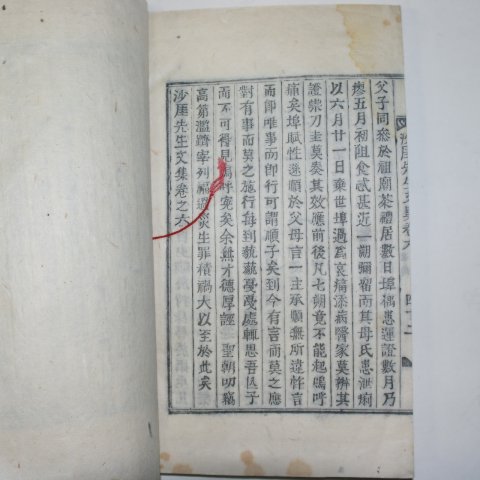 父子同參於祖廟茶禮居數日埠偶患運證數月乃
瘳五月初阻食忒甚近一朔彌留而其母氏患泄痢
以六月廿一日棄世埠過爲哀痛添病醫家莫辨其
證柴刀圭莫奏其效應前後凡七朔竟不能起嗚呼
痛矣埠賦性遜順於父母言一主承順無所違忤言
而卽唯事而卽行可謂順子矣到今有言而莫之應
對有事而莫之施行每到貌貌憂憂處輒思吾亾子
而不可得見嗚呼寃矣余無才德厚誣 聖朝叨竊
高第濫躋宰列福過災生罪積禍大以至於此矣
沙厓先生文集卷之六
沙厓先生文集卷六 四十二